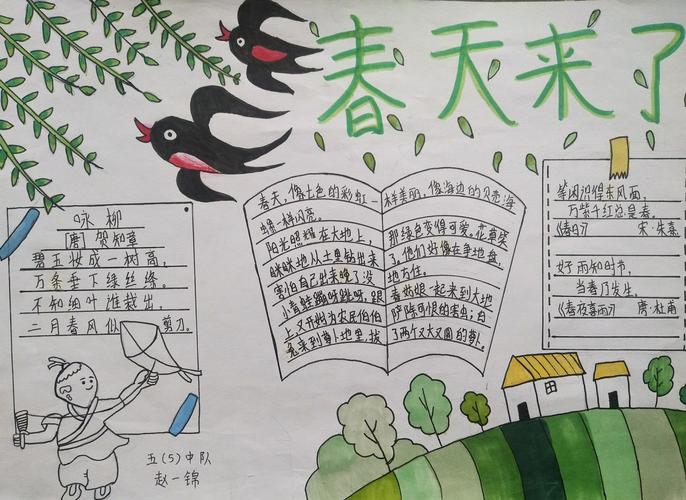 春天来了
咏柳
[唐] 贺知章
碧玉妆成一树高,
万条垂下绿丝绦。
不知细叶谁裁出,
二月春风似 剪刀。
五(5)中队
赵一锦
春天,像七色的彩虹一样美丽,像海边的贝壳海
一样闪亮。
阳光照耀在大地上,那绿色变得可爱。花草笑
眯眯地从土里钻出来了,他们好像在争地盘,
害怕自己赶来晚了没地方住。
小青蛙蹦呀跳呀,跟春姑娘一起来到大地
上,又开始为农民伯伯铲除可恨的害虫;白
兔来到萝卜地里,拔了两个又大又圆的萝卜。
等闲识得东风面,
万紫千红总是春。
《春日》 宋·朱熹
好雨知时节,
当春乃发生。
《春夜喜雨》 唐·杜甫